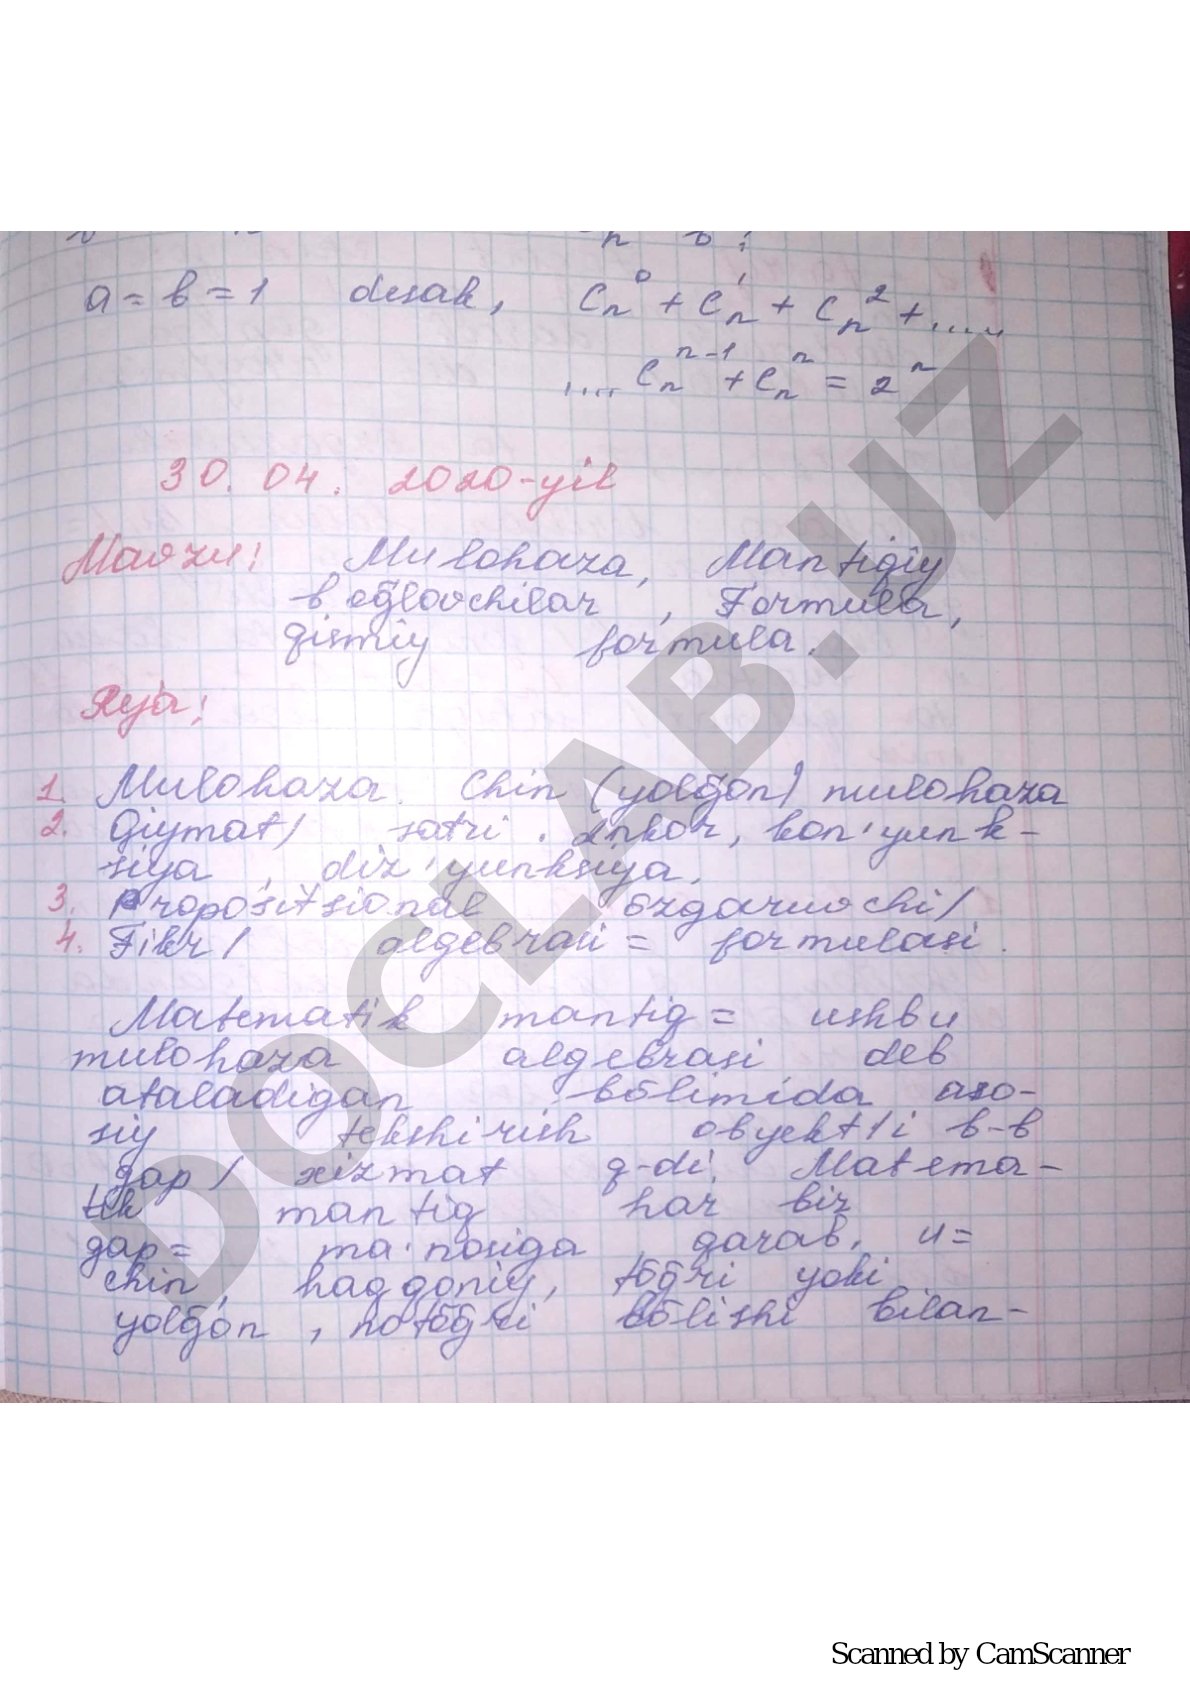 a = b = 1 desak, Cₙ⁰ + Cₙ¹ + Cₙ² + .....
.... Cₙⁿ⁻¹ + Cₙⁿ = 2ⁿ
30. 04. 2020-yil
Mavzu: Mulohaza, Mantiqiy
bõglovchilar, Formula,
qismiy formula.
Reja:
1. Mulohaza. Chin (yolg̃on) mulohaza
2. Qiymat/ satri. Inkor, kon'yunk-
siya, diz'yunksiya.
3. Propozitsional õzgaruvchi/
4. Fikr/ algebrasi = formulasi.
Matematik mantiq = ushbu
mulohaza algebrasi deb
ataladigan bõlimida aso-
siy tekshirish obyekt/i b-b
gap/ xizmat q-di. Matema-
tik mantiq har bir
gap = ma'nosiga qarab, u =
chin, haqqoniy, tõg̃ri yoki
yolg̃on, notõg̃ri bõlishi bilan-
DOCLAB.UZ
Scanned by CamScanner